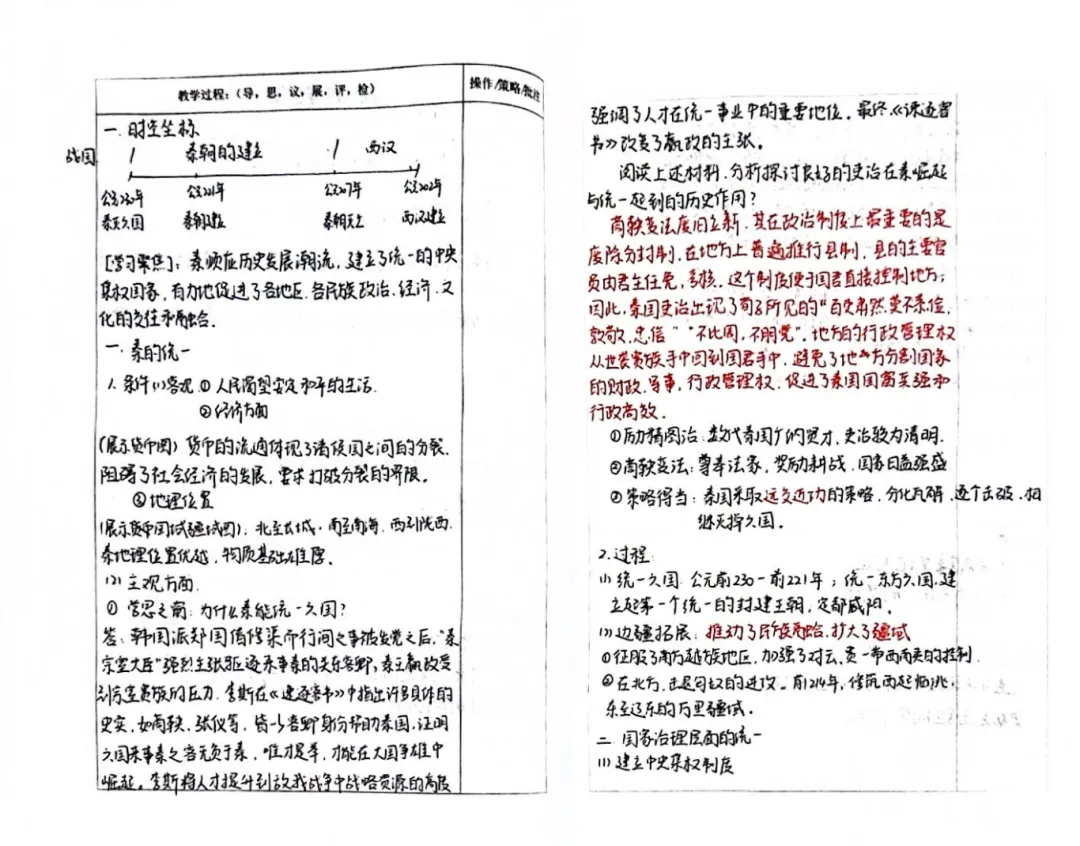 教学过程：（导，思，议，展，评，检）
操作/策略/批注
一. 时空坐标
战国 秦朝的建立 西汉
公元230年 公元221年 公元207年 公元202年
秦灭六国 秦朝建立 秦朝灭亡 西汉建立
[学习聚焦]：秦顺应历史发展潮流，建立了统一的中央
集权国家，有力地促进了各地区.各民族政治.经济.文
化的交往和融合.
一. 秦的统一
1. 条件(1)客观 ① 人民渴望安定和平的生活.
②经济方面
(展示货币图) 货币的流通体现了诸侯国之间的分裂.
阻碍了社会经济的发展，要求打破分裂的界限。
③地理位置
(展示货币国域疆域图)：北至长城.南至南海.西到陇西.
秦地理位置优越，物质基础雄厚。
(2) 主观方面.
① 学思之窗：为什么秦能统一六国？
答：韩国派郑国借修渠而行间之事被发觉之后，“秦
宗室大臣”强烈主张驱逐来事秦的关东客卿，秦王嬴政受
到宗室贵族的压力. 李斯在《谏逐客书》中指出许多具体的
史实，如商鞅、张仪等，皆以客卿身份帮助秦国，证明
六国来事秦之客无负于秦，唯才是举，才能在大国争雄中
崛起。李斯将人才提升到敌我战争中战略资源的高度
强调了人才在统一事业中的重要地位。最终《谏逐客
书》改变了嬴政的主张。
阅读上述材料.分析探讨良好的吏治在秦崛起
与统一起到的历史作用？
商鞅变法废旧立新.其在政治制度上最重要的是
废除分封制.在地方上普遍推行县制，县的主要官
员由君主任免，考核. 这个制度便于国君直接控制地方；
因此，秦国吏治出现了荀子所见的“百吏肃然.莫不恭俭，
敦敬.忠信”“不比周，不朋党”. 地方的行政管理权
从世袭贵族手中回到国君手中，避免了地方分割国家
的财政.军事，行政管理权. 促进了秦国国富兵强和
行政高效.
①励精图治：数代秦国个的贤才，吏治较为清明.
②商鞅变法：尊奉法家，奖励耕战.国家日益强盛
③策略得当：秦国采取远交近攻的策略，分化瓦解.逐个击破.相
继灭掉六国。
2.过程：
(1) 统一六国：公元前230—前221年；统一东方六国.建
立起第一个统一的封建王朝，定都咸阳。
(2)边疆拓展：推动了民族融合.扩大了疆域
①征服了南方越族地区，加强了对云、贵一带西南夷的控制.
②在北方.击退匈奴的进攻. 前214年，修筑西起临洮，
东至辽东的万里疆域.
二. 国家治理层面的统一
(1) 建立中央集权制度